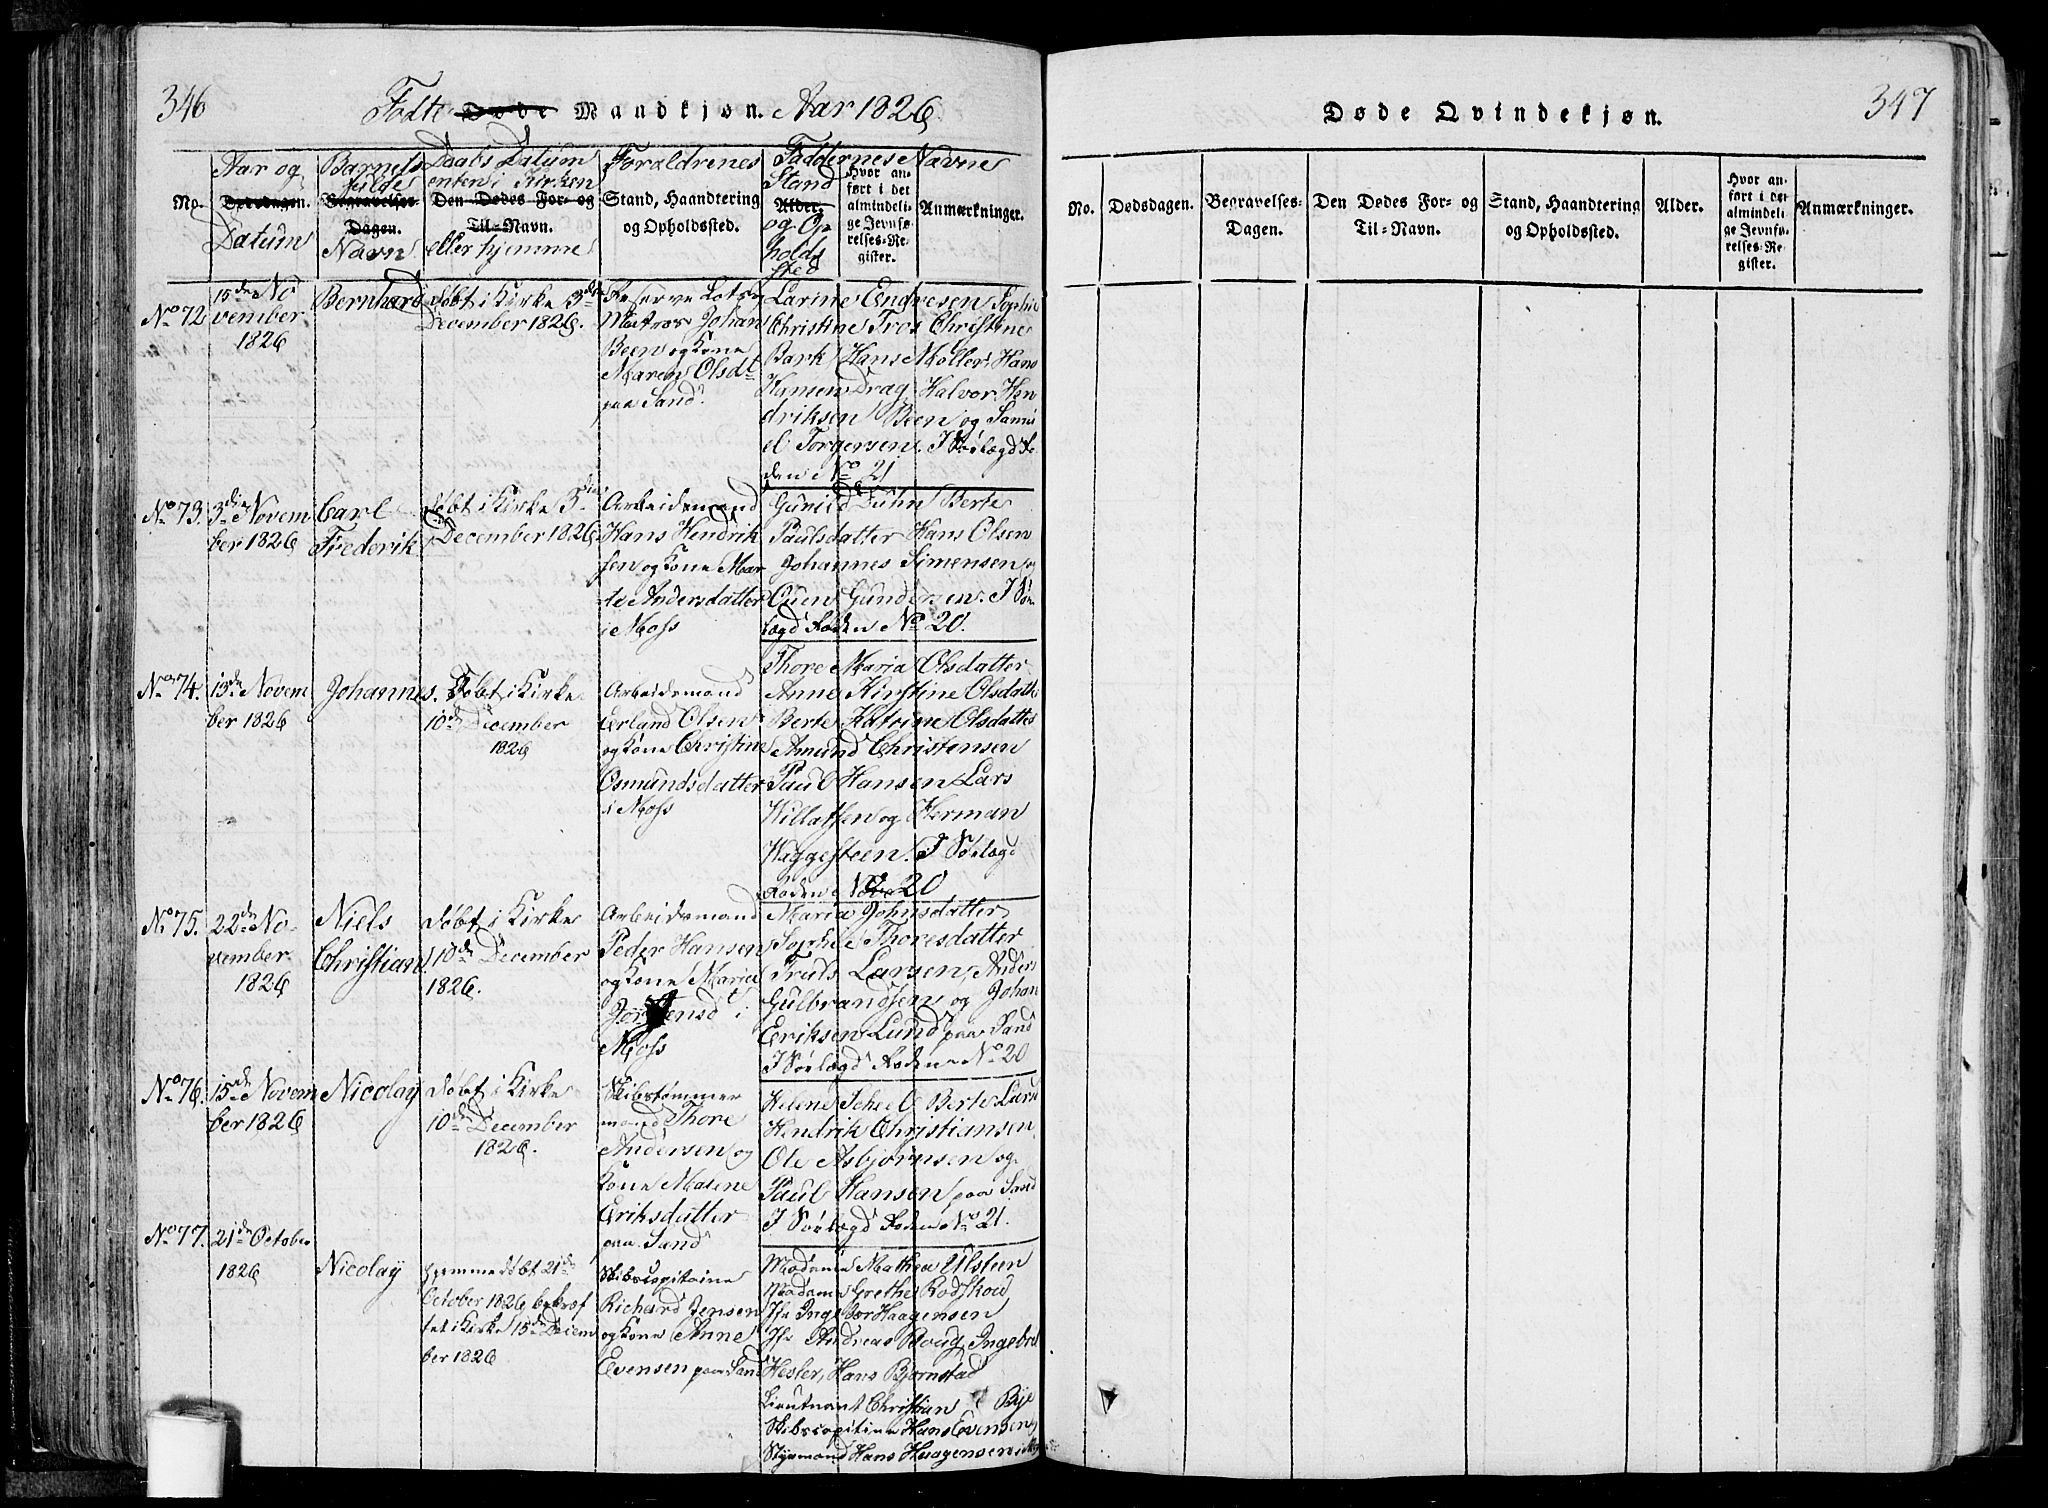 346
Fødte Døde Mandkjøn. Aar 1826
No.
Aar og
Dødsdagen.
Datum
Barnets
fulde
Begravelses-
Dagen.
Navn
Daabs Datum
enten i Kirken
Den Dødes For- og
Til-Navn.
eller hjemme
Foraldrenes
Stand, Haandtering
og Opholdssted.
Faddernes Navne
Stand
Alder.
og Op
holds
sted
Hvor an-
ført i det
almindeli-
ge Jevnfø-
relses-Re-
gister.
Anmærkninger.
No 72
15de No
vember
1826
Bernhard
døbt i Kirke 3die
December 1826.
Reserve Lots og
Matros Johan
Been og Kone
Maren Olsdt
paa Sand.
Larine Endresen Sophie
Christine Tros Christine
Bark Hans Møller Hans
Hansen Drag Halvor Hen
driksen Been og Samu
el Torgersen. I Sørlægd Ro
den No 21
No 73.
3die Novem
ber 1826
Carl
Frederik
døbt i Kirke 3die
December 1826.
Arbeidsmand
Hans Hendrik
sen og Kone Mar
te Andersdatter
i Moss
Gunild Duhn Berte
Paulsdatter Hans Olsen
Johannes Simensen og
Ouen Gundersen. I Sør
lægd Roden No 20.
No 74.
13de Novem
ber 1826
Johannes.
Døbt i Kirke
10de December
1826
Arbeidsmand
Erland Olsen
og Kone Christine
Osmundsdatter
i Moss
Thore Maria Olsdatter
Anne Kirstine Olsdatte
Berte Katrine Olsdatter
Amund Christensen
Paul Hansen Lars
Killassen og Herman
Haggesteen. I Sørlægd
Roden No 20
No 75.
22de No-
vember
1826
Niels
Christian
døbt i Kirke
10de December
1826.
Arbeidsmand
Peder Hansen
og Kone Maria
i
Moss
Maria Johnsdatter
Sophie Thoresdatter
Truls Larsen, Anders
Gulbrandsen og Johan
Eriksen Lund paa Sand
I Sørlægd Roden No 20
No 76.
15de Novem
ber 1826
Nicolay
døbt i Kirke
10de December
1826.
Skibstømmer
mand Thore
Andersen og
Kone Malene
Eriksdatter
paa Sand
Helene Scheel Berte Lars
Hendrik Christiansen
Ole Asbjørnsen og
Paul Hansen paa Sand
I Sørlægd Roden No 21.
No 77.
21de October
1826
Nicolay
hjemmedøbt 21de
October 1826 bekræf
tet i Kirke 15de Decem
ber 1826
Skibscapitaine
Richard Jensen
og Kone Anne
Evensen paa Sand
Madame Mathea Ulsten
Madame Grethe Rodskow
Jfr Ingebor Haagensen
Hr Andreas Boug, Ingebret
Hesler, Hans Bjørnstad
Lieutnant Christian Bye
Skibscapitine Hans Evensen
Styrmand Hans Haagensen i
347
Døde Qvindekjøn.
No.
Dødsdagen.
Begravelses-
Dagen.
Den Dødes For- og
Til-Navn.
Stand, Haandtering
og Opholdssted.
Alder.
Hvor an-
ført i det
almindeli-
ge Jevnfø-
relses-Re-
gister.
Anmærkninger.